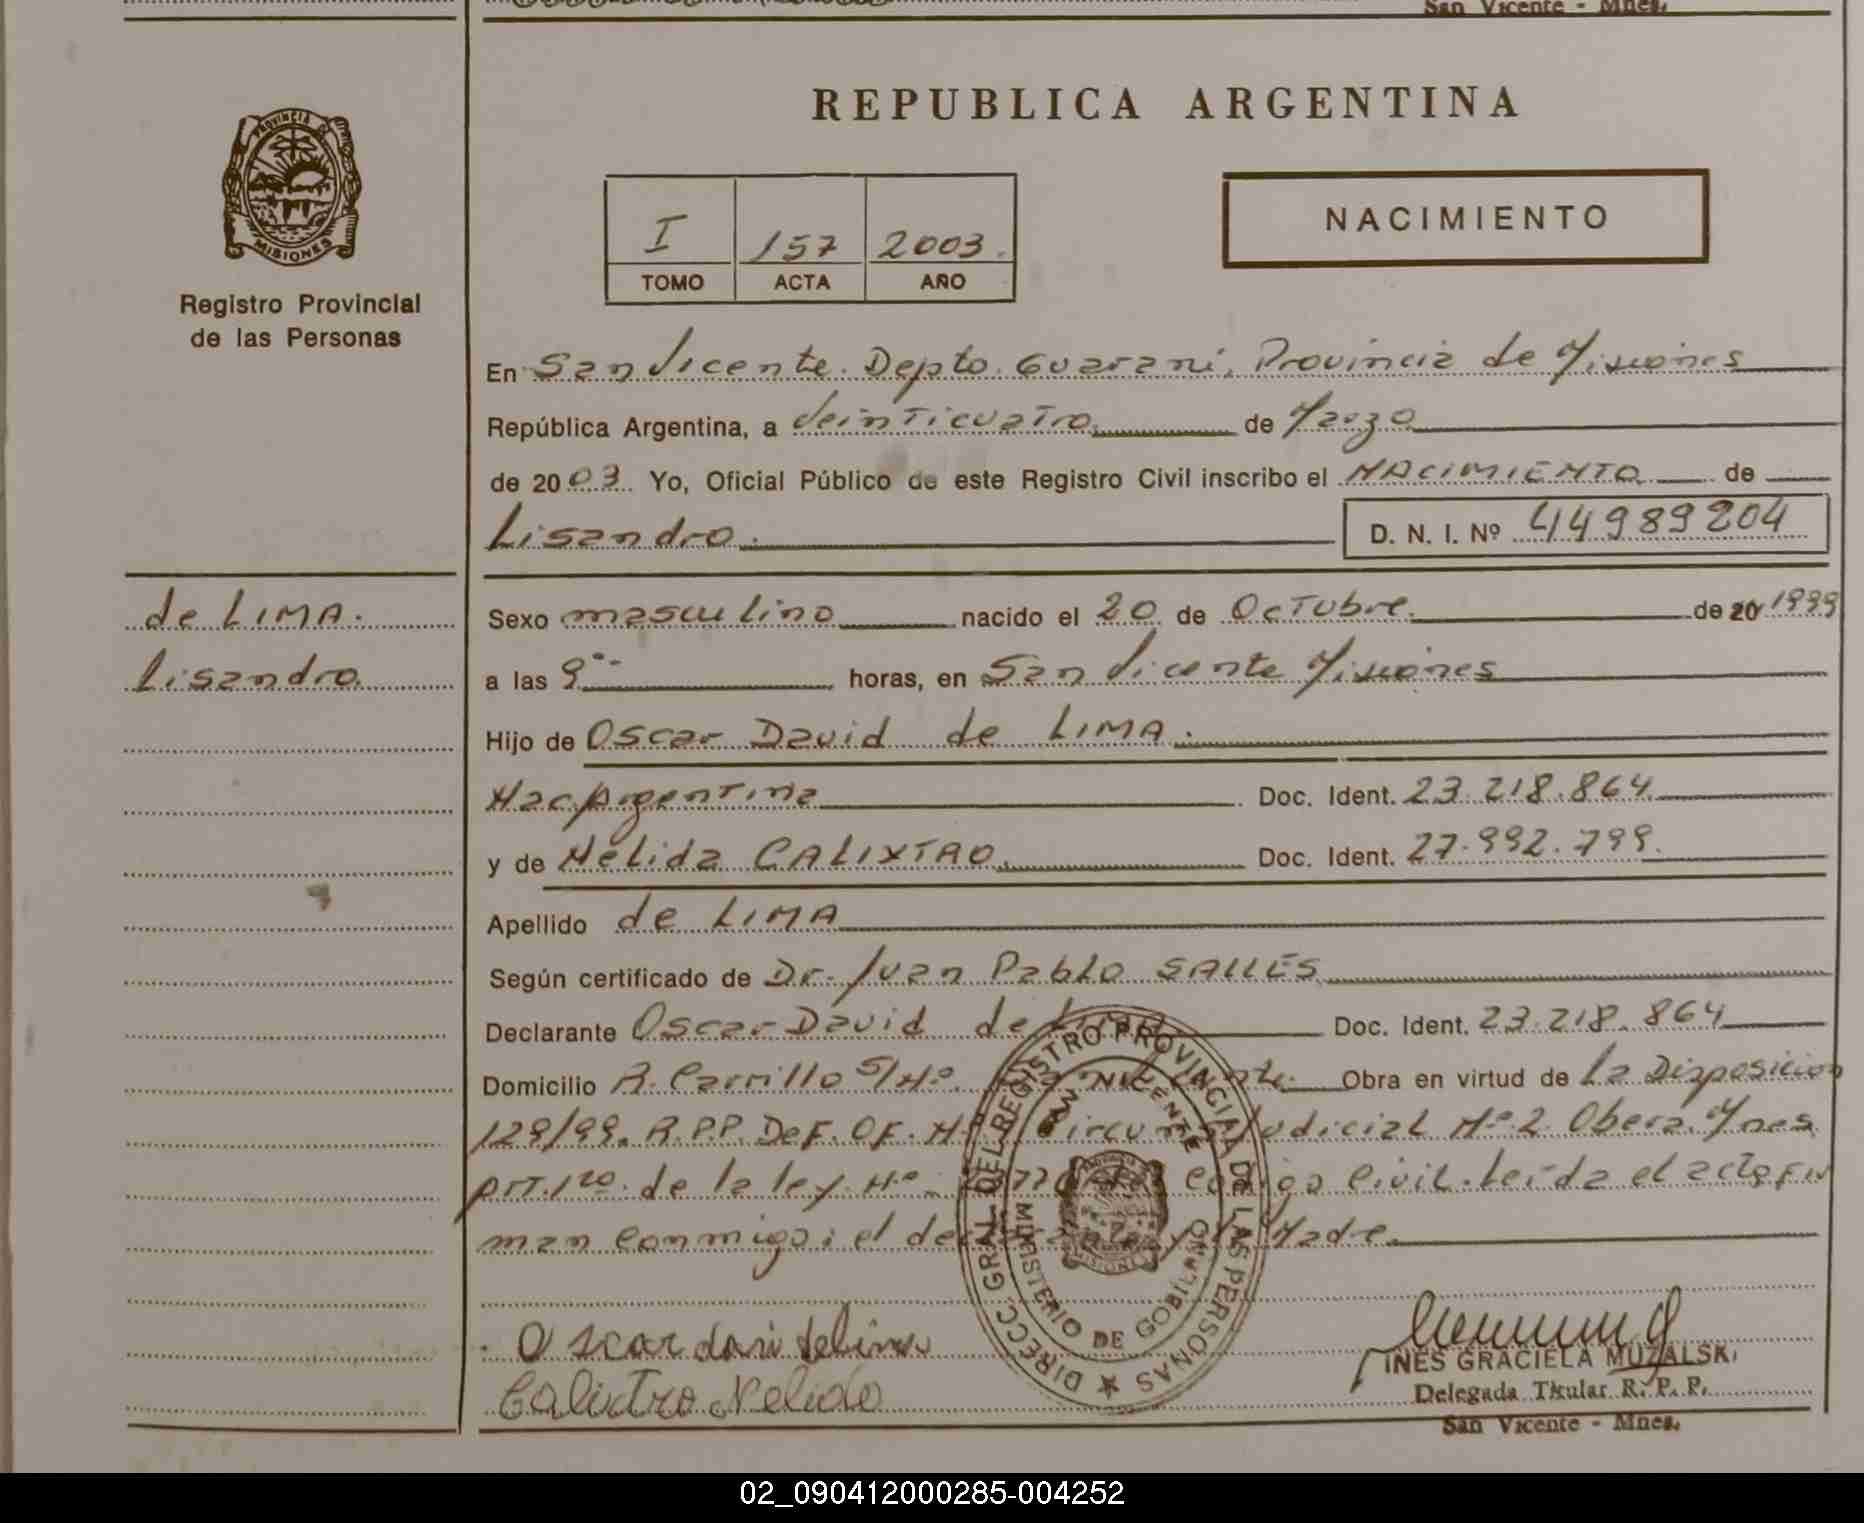 San Vicente - Mnes.
PROVINCIA DE
MISIONES
Registro Provincial
de las Personas
REPUBLICA ARGENTINA
I 157 2003.
TOMO ACTA AÑO
NACIMIENTO
En San Vicente. Depto. Guarani, Provincia de Misiones
República Argentina, a Veinticuatro de Marzo
de 2003. Yo, Oficial Público de este Registro Civil inscribo el NACIMIENTO de
Lisandro. D. N. I. Nº 44989204
de LIMA.
Lisandro
Sexo masculino nacido el 20 de Octubre de 20 1999
a las 9 horas, en San Vicente Misiones
Hijo de Oscar David de LIMA.
Nac. Argentina Doc. Ident. 23.218.864
y de Nélida CALIXTRO Doc. Ident. 27.992.799.
Apellido de LIMA
Según certificado de Dr. Juan Pablo SALLES
Declarante Oscar David de Lima Doc. Ident. 23.218.864
Domicilio R. Carrillo S/Nº. San Vicente. Obra en virtud de La Disposicion
129/99. R.P.P. DEF. OF. Nº Circuns. Judicial Nº 2 Oberá. Mnes
Art. 1ro. de la ley Nº Codigo Civil. Leída el acta fir
man conmigo; el declarante y la Madre.
Oscar davi delima
Calixtro Nelida
DIRECC GRAL DEL REGISTRO PROVINCIAL DE LAS PERSONAS
SAN VICENTE
MINISTERIO DE GOBIERNO
MISIONES
INES GRACIELA MUZALSKI
Delegada Titular R. P. P.
San Vicente - Mnes.
02_090412000285-004252